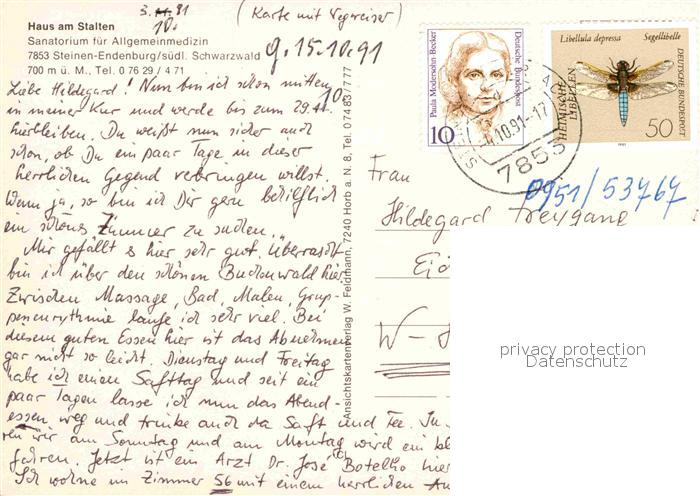 3. 10. 91
(Karte mit Wegweiser)
g. 15.10.91
Haus am Stalten
Sanatorium für Allgemeinmedizin
7853 Steinen-Endenburg/südl. Schwarzwald
700 m ü. M., Tel. 0 76 29 / 4 71
Liebe Hildegard! Nun bin ich schon mitten
in meiner Kur und werde bis zum 29.10.
hierbleiben. Du weißt nun sicher auch
schon, ob Du ein paar Tage in dieser
herrlichen Gegend verbringen willst.
Wenn ja, so bin ich Dir gern behilflich
ein schönes Zimmer zu suchen.
Mir gefällt es hier sehr gut. Überrascht
bin ich über den schönen Buchenwald hier.
Zwischen Massage, Bad, Malen, Grup-
peneurythmie laufe ich sehr viel. Bei
diesem guten Essen hier ist das Abnehmen
gar nicht so leicht. Dienstag und Freitag
habe ich einen Safttag und seit ein
paar Tagen lasse ich nun das Abend-
essen weg und trinke auch da Saft und Tee.
ren wir am Sonntag und am Montag wird ein
fahren. Jetzt ist ein Arzt Dr. José Botelho hier
Ich wohne im Zimmer 56 mit einem herrlichen
Ansichtskartenverlag W. Feldmann, 7240 Horb a. N. 8, Tel. 07483/777
Paula Modersohn-Becker
Deutsche Bundespost
10
Libellula depressa Segellibelle
HEIMISCHE LIBELLEN
DEUTSCHE BUNDESPOST
50
10.91-17
7853
0951/53767
Frau
Hildegard Freygang
W-
privacy protection
Datenschutz